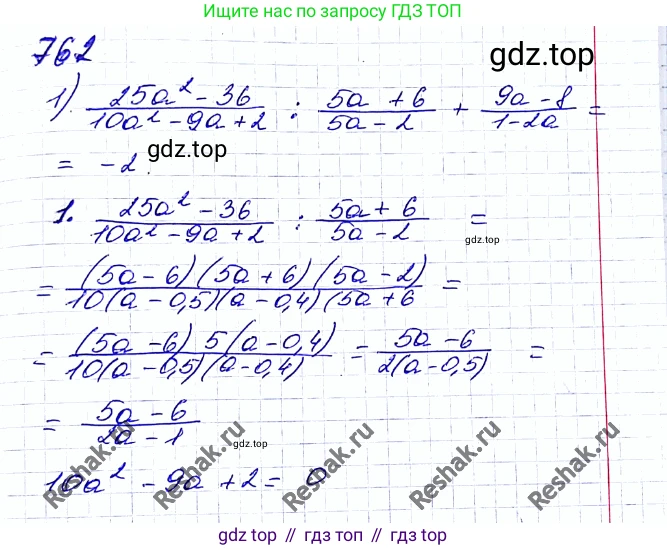 Ищите нас по запросу ГДЗ ТОП
762
gdz.top
1) (25a² - 36)/(10a² - 9a + 2) : (5a + 6)/(5a - 2) + (9a - 8)/(1 - 2a) =
= -2.
gdz.top
1. (25a² - 36)/(10a² - 9a + 2) : (5a + 6)/(5a - 2) =
gdz.top
= (5a - 6)(5a + 6)(5a - 2)/10(a - 0,5)(a - 0,4)(5a + 6 =
= (5a - 6) 5(a - 0,4)/10(a - 0,5)(a - 0,4) = (5a - 6)/2(a - 0,5) =
= (5a - 6)/(2a - 1)
gdz.top
10a² - 9a + 2 = 0
Reshak.ru
Reshak.ru
Reshak.ru
Reshak.ru
gdz.top // гдз топ // гдз.топ